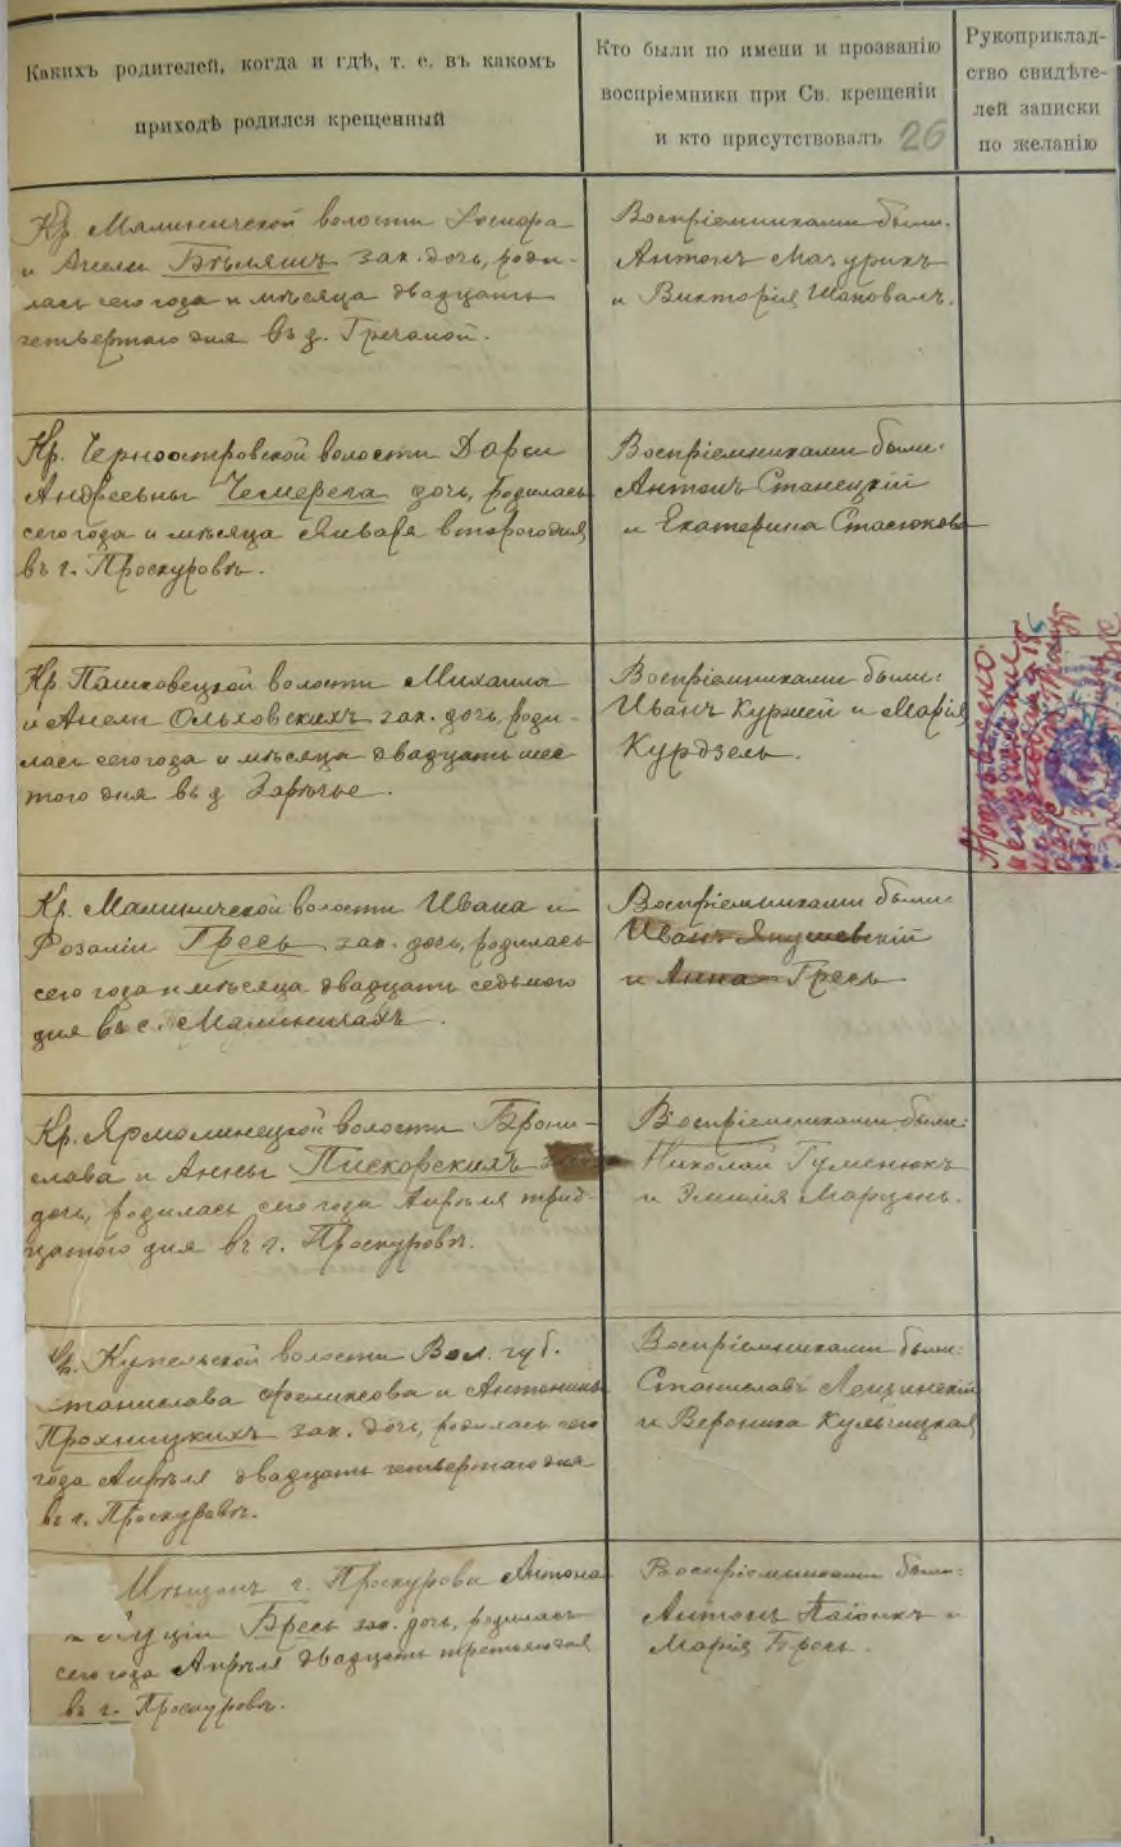 Какихъ родителей, когда и гдѣ, т. е. въ какомъ
приходѣ родился крещенный
Кто были по имени и прозванію
воспріемники при Св. крещеніи
и кто присутствовалъ 26
Рукоприклад-
ство свидѣте-
лей записки
по желанію
Кр. Малиничской волости
и Анели Бѣлянъ зак. дочь, роди-
лась сего года и мѣсяца двадцать
четвертаго дня въ д. Гречаной.
Воспріемниками были:
Антонъ Мазурикъ
и Викторія Шаповалъ.
Кр. Черноостровской волости Дарьи
Андреевны Чемерега дочь, родилась
сего года и мѣсяца Января второго дня
въ г. Проскуровѣ.
Воспріемниками были:
Антонъ Станецкій
и Екатерина Стасюкова
Кр. Пашковецкой волости Михаила
и Анели Ольховскихъ зак. дочь, роди-
лась сего года и мѣсяца двадцать шес
того дня въ д Зарѣчье.
Воспріемниками были:
Иванъ Куржей и Марія
Курдзель.
Кр. Малиничской волости Ивана и
Розаліи Гресь зак. дочь, родилась
сего года и мѣсяца двадцать седьмого
дня въ с. Малиничахъ.
Воспріемниками были:
Иванъ Янушевскій
и Анна Гресь
Кр. Ярмолинецкой волости Брони-
слава и Анны Пискорскихъ
дочь, родилась сего года Апрѣля трид-
цатого дня въ г. Проскуровѣ.
Воспріемниками были:
Николай Гуменюкъ
и Эмилія Марцень.
Кр. Купельской волости Вол. губ.
Станислава Феликсова и Антонины
Прохницкихъ зак. дочь, родилась сего
года Апрѣля двадцать четвертаго дня
въ г. Проскуровѣ.
Воспріемниками были:
Станиславъ Лещинскій
и Вероника Кульчицкая
Мѣщанъ г. Проскурова Антона
и Луціи Бресь зак. дочь, родилась
сего года Апрѣля двадцать третьяго дня
въ г. Проскуровѣ.
Воспріемниками были:
Антонъ и
Марія Бресь.